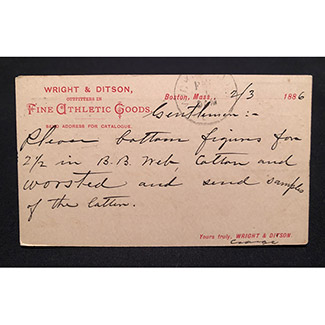 WRIGHT & DITSON,
OUTFITTERS IN
FINE ATHLETIC GOODS,
SEND ADDRESS FOR CATALOGUE.
Boston, Mass., 2/3 1886
Gentlemen:-
Please bottom figures for
2 1/2 in B.B. Web, Cotton and
worsted and send samples
of the latter.
Yours truly, WRIGHT & DITSON.